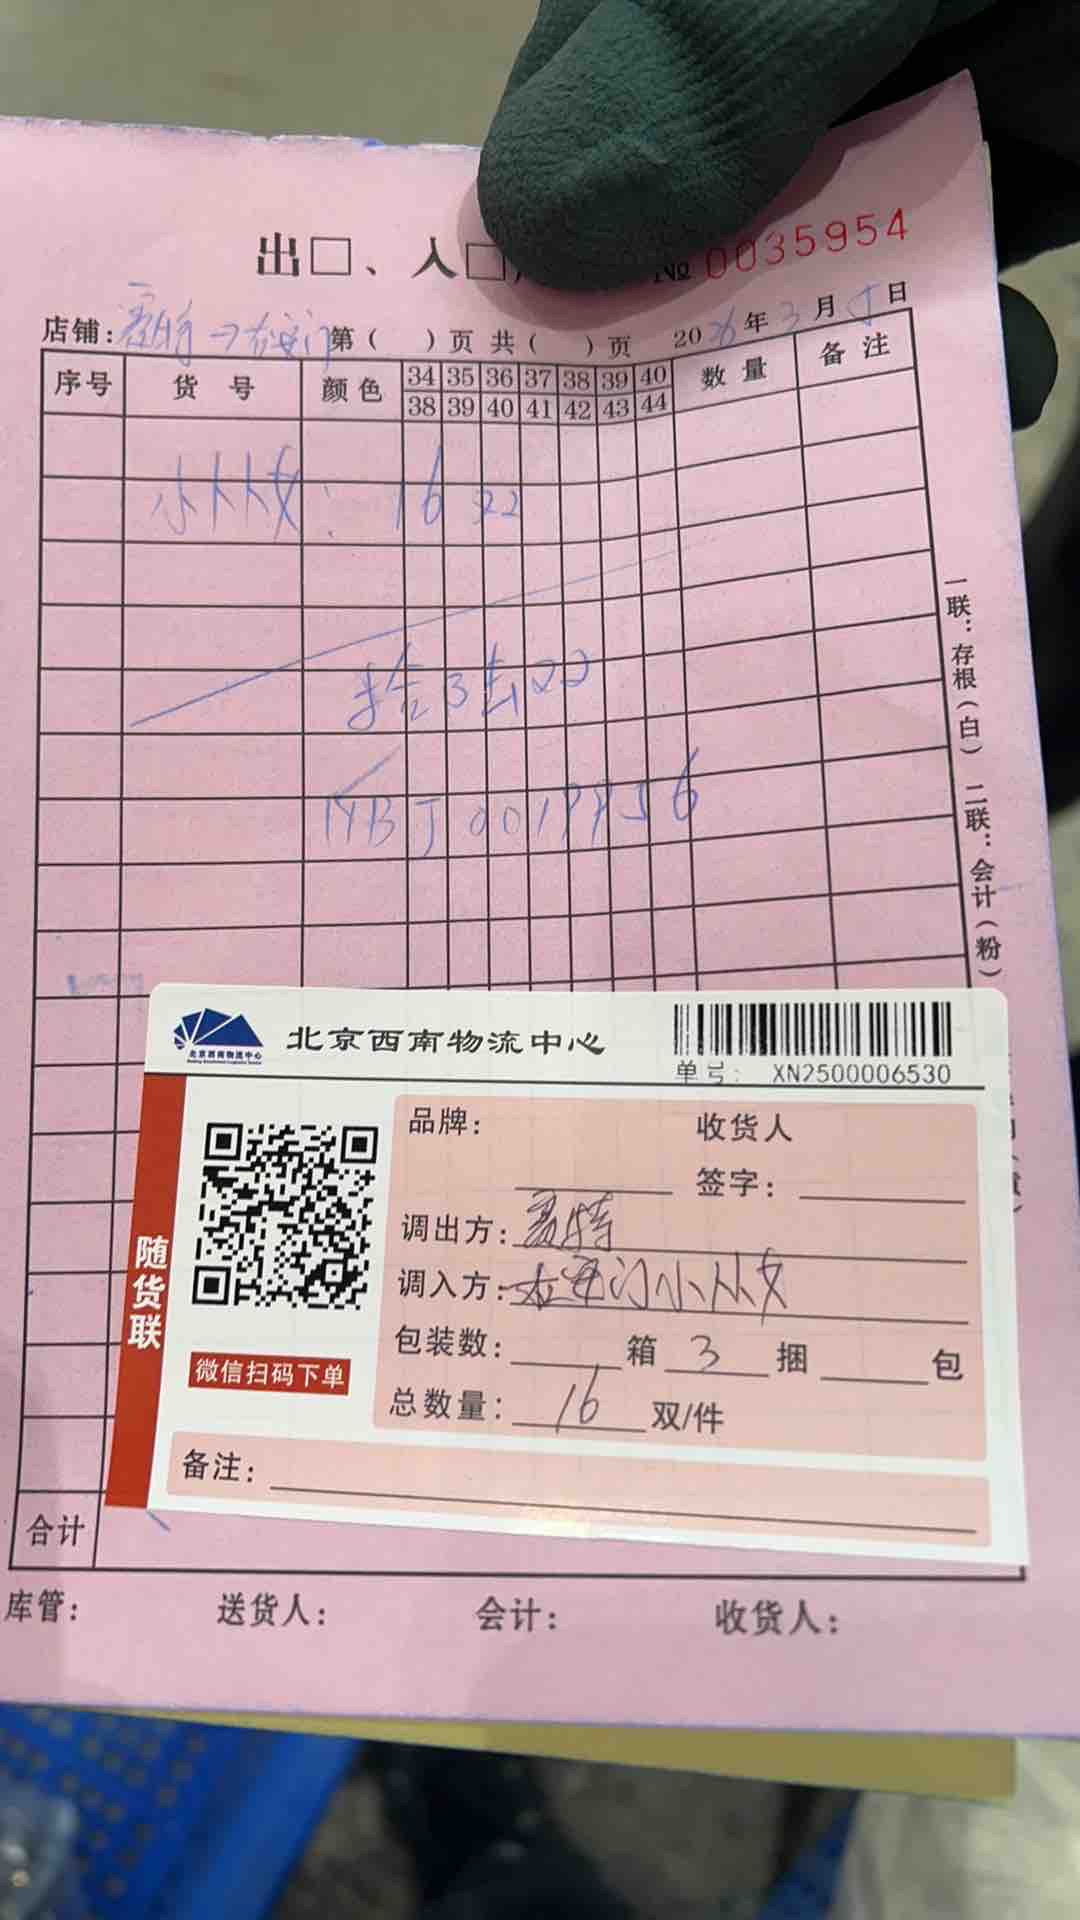 出□、入□
№ 0035954
店铺:赛特→右安门 第( )页 共( )页 2026年3月5日
序号 货号 颜色 34 35 36 37 38 39 40 数量 备注
38 39 40 41 42 43 44
小从女: 16双
拾3去22
YBJ0019956
一联:存根(白) 二联:会计(粉)
北京西南物流中心
北京西南物流中心
单号: XN2500006530
随货联
微信扫码下单
品牌:
收货人
签字:
调出方:赛特
调入方:右安门小从女
包装数: 箱 3 捆 包
总数量: 16 双/件
备注:
合计
库管: 送货人: 会计: 收货人: